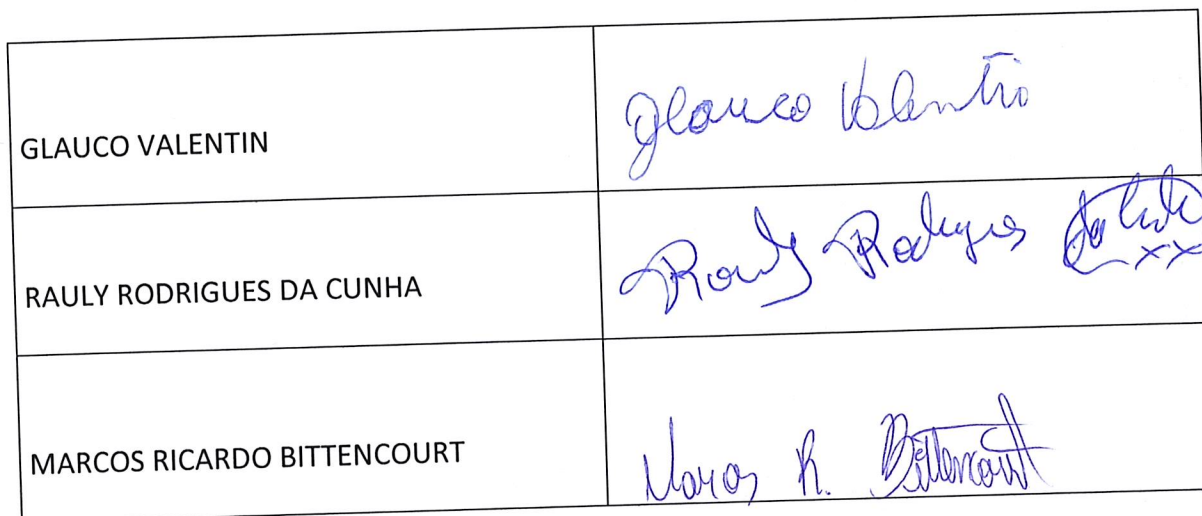 GLAUCO VALENTIN
Glauco Valentin
RAULY RODRIGUES DA CUNHA
Rauly Rodrigues da Cunha
MARCOS RICARDO BITTENCOURT
Marcos R. Bittencourt